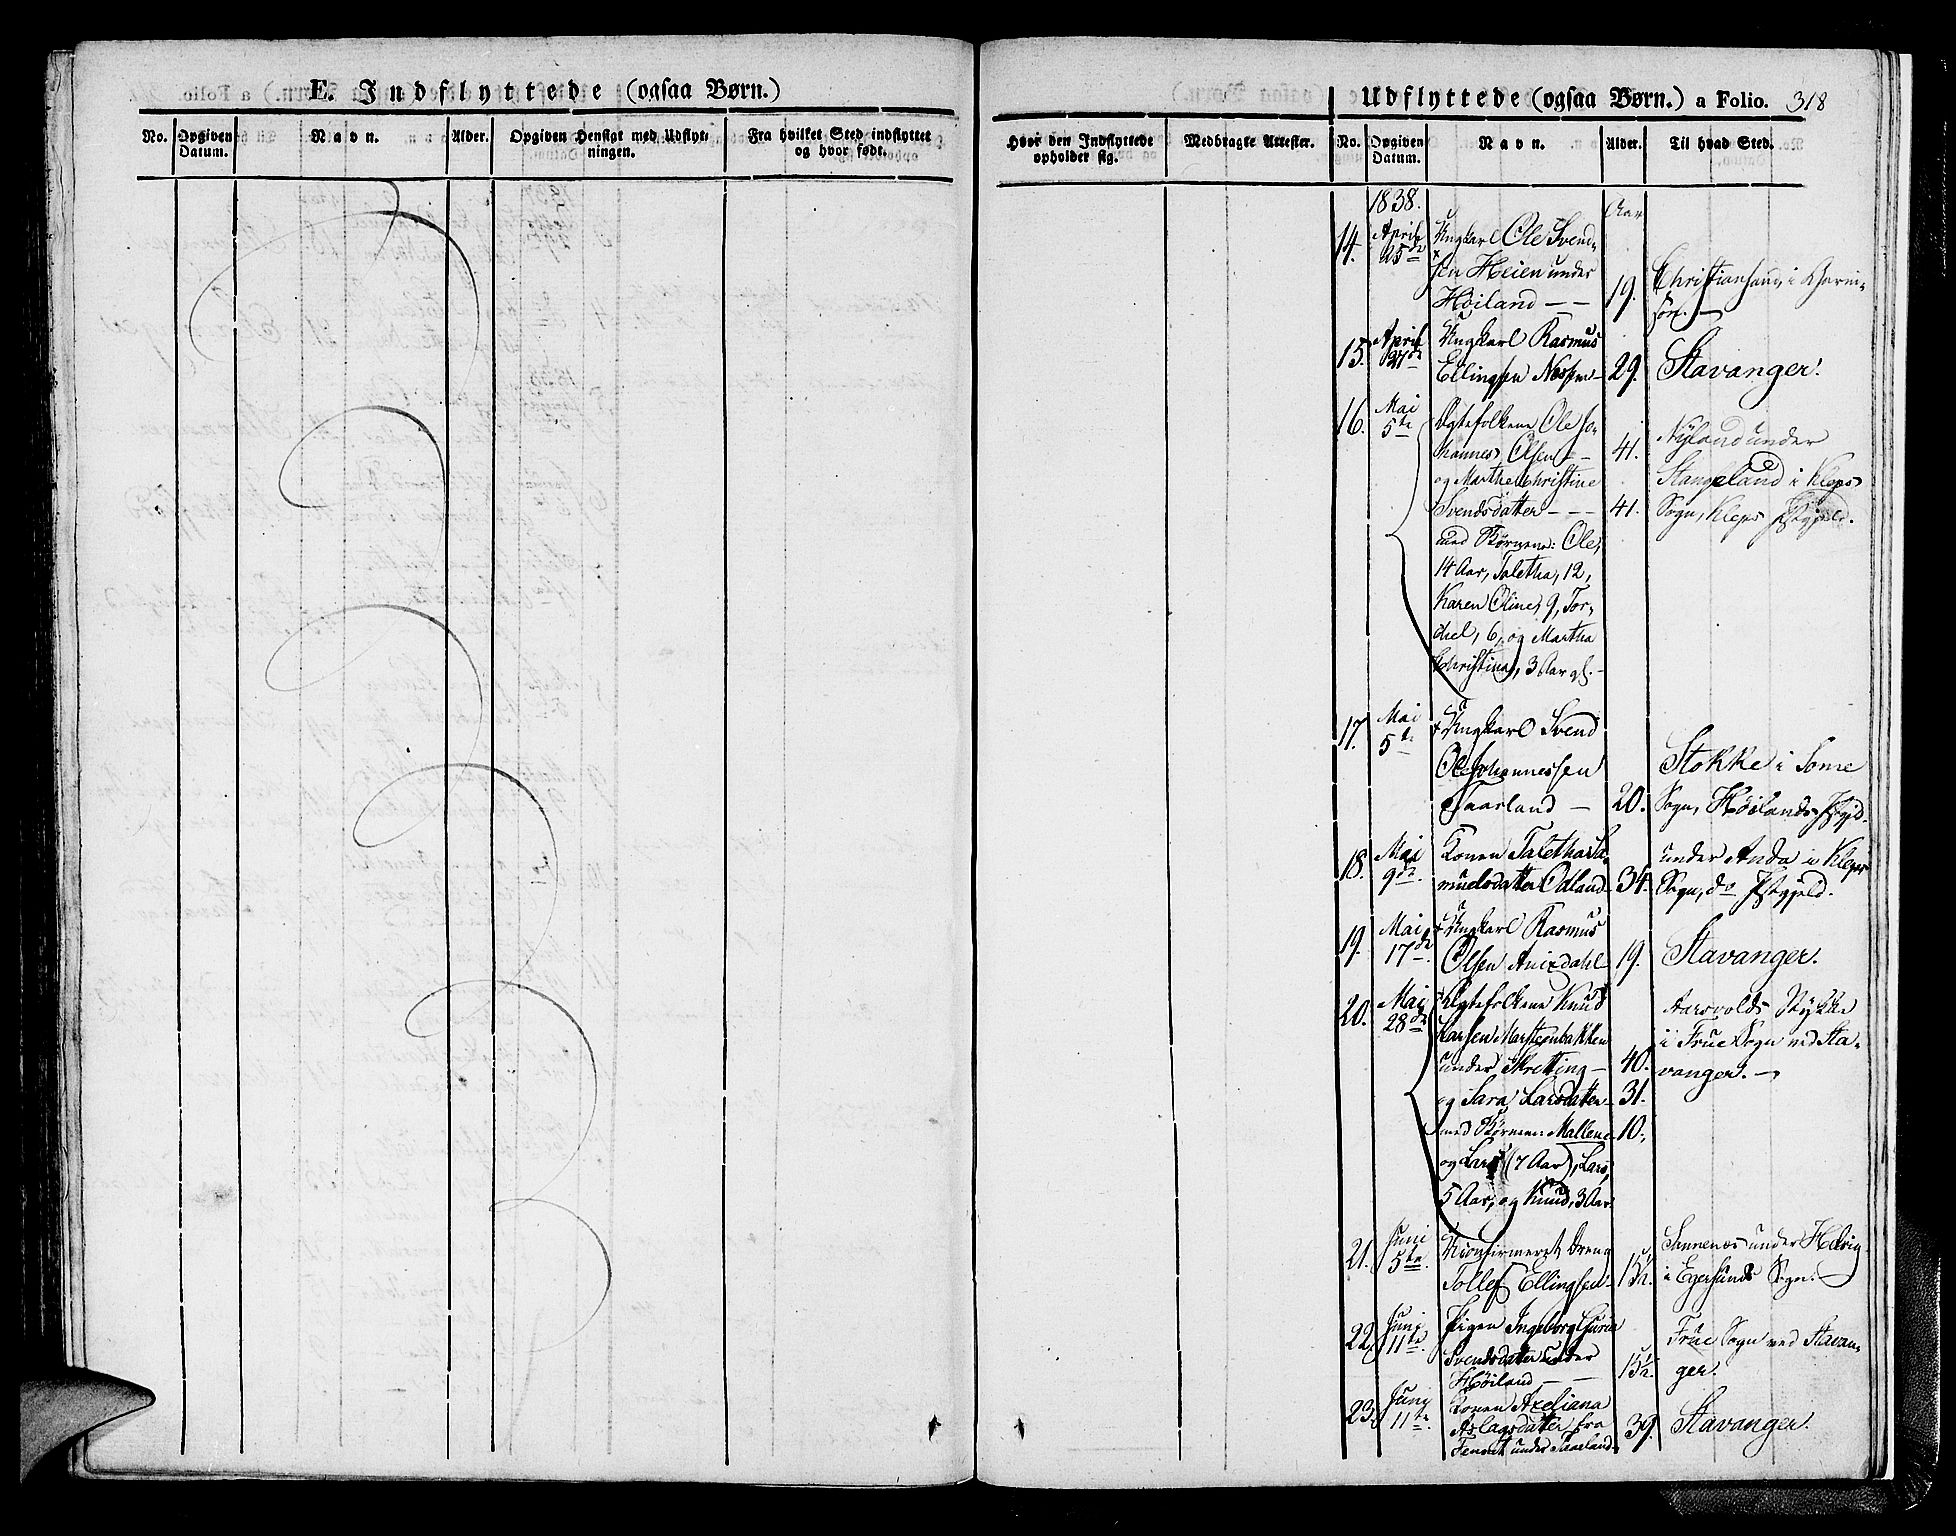 E. Indflyttede (ogsaa Børn.)
No.
Opgiven Datum.
Navn.
Alder.
Opgiven Hensigt med Udflytningen.
Fra hvilket Sted indflyttet og hvor født.
Udflyttede (ogsaa Børn.) a Folio. 318
Hvor den Indflyttede opholder sig.
Medbragte Attester.
No.
Opgiven Datum.
Navn.
Alder.
Til hvad Sted.
1838. Aar
14. April 25de Ungkarl Ole Svend-
sen Heien under
Høiland — — 19. Christiansand, i
15. April 27de Ungkarl Rasmus
Ellingsen 29. Stavanger.
16. Mai 5te Ægtefolkene Ole Jo-
hannes Olsen — 41. Nyland under
og Marthe Christine Stangeland i Kleps
Svendsdatter — — 41. Sogn, Kleps Præstegjeld.
med Børnene: Ole,
14 Aar, Taletha, 12,
Karen Oline, 9, Tor-
chel, 6, og Martha
Christina, 3 Aar gl. —
17. Mai 5te Ungkarl Svend
Ole Johannessen Stokke i Some
Taarland — 20. Sogn, Høilands Præstegjd.
18. Mai 9de Konen Taletha Sa- under Anda i Kleps
muelsdatter Odland 34. Sogn, do Præstegjeld.
19. Mai 17de Ungkarl Rasmus
Olsen Anixdahl 19. Stavanger.
20. Mai 28de Ægtefolkene Knud Aarsvolds Stykke
Larsen Marsteenbakken i Frue Sogn ved Sta-
under Skretting — 40. vanger. —
og Sara Larsdatter — 31.
med Børnene: Mallene 10,
og Lars (7 Aar), Lars,
5 Aar, og Knud, 3 Aar.
21. Juni 5te Konfirmeret Dreng under
Tollef Ellingsen 15½. i Egersunds Sogn. —
22. Juni 11te Pigen Ingeborg Frue Sogn ved Stavan-
Svendsdatter under
Høiland — — 15½. ger.
23. Juni 11te Konen Axeliana
Aslagsdatter fra 39. Stavanger.
under Taarland